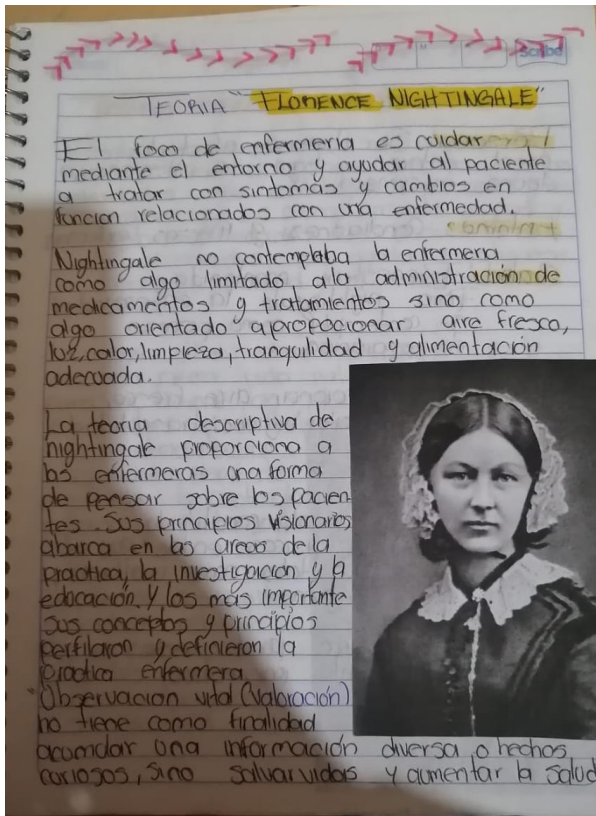 Scribe
TEORIA "FLORENCE NIGHTINGALE"
El foco de enfermeria es cuidar
mediante el entorno y ayudar al paciente
a tratar con sintomas y cambios en
funcion relacionados con una enfermedad.
Nightingale no contemplaba la enfermeria
como algo limitado a la administración de
medicamentos y tratamientos sino como
algo orientado a propocionar aire fresco,
luz, calor, limpieza, tranquilidad y alimentación
adecuada.
La teoria descriptiva de
nightingale proporciona a
las enfermeras una forma
de pensar sobre los pacien
tes. Sus principios visionarios
abarca en las areas de la
practica, la investigacion y la
educación. Y los más importante
sus conceptos y principios
perfilaron y definieron la
practica enfermera
"Observacion vital (valoración)
no tiene como finalidad
acomular una información diversa o hechos
coriosos, sino salvar vidas y aumentar la salud